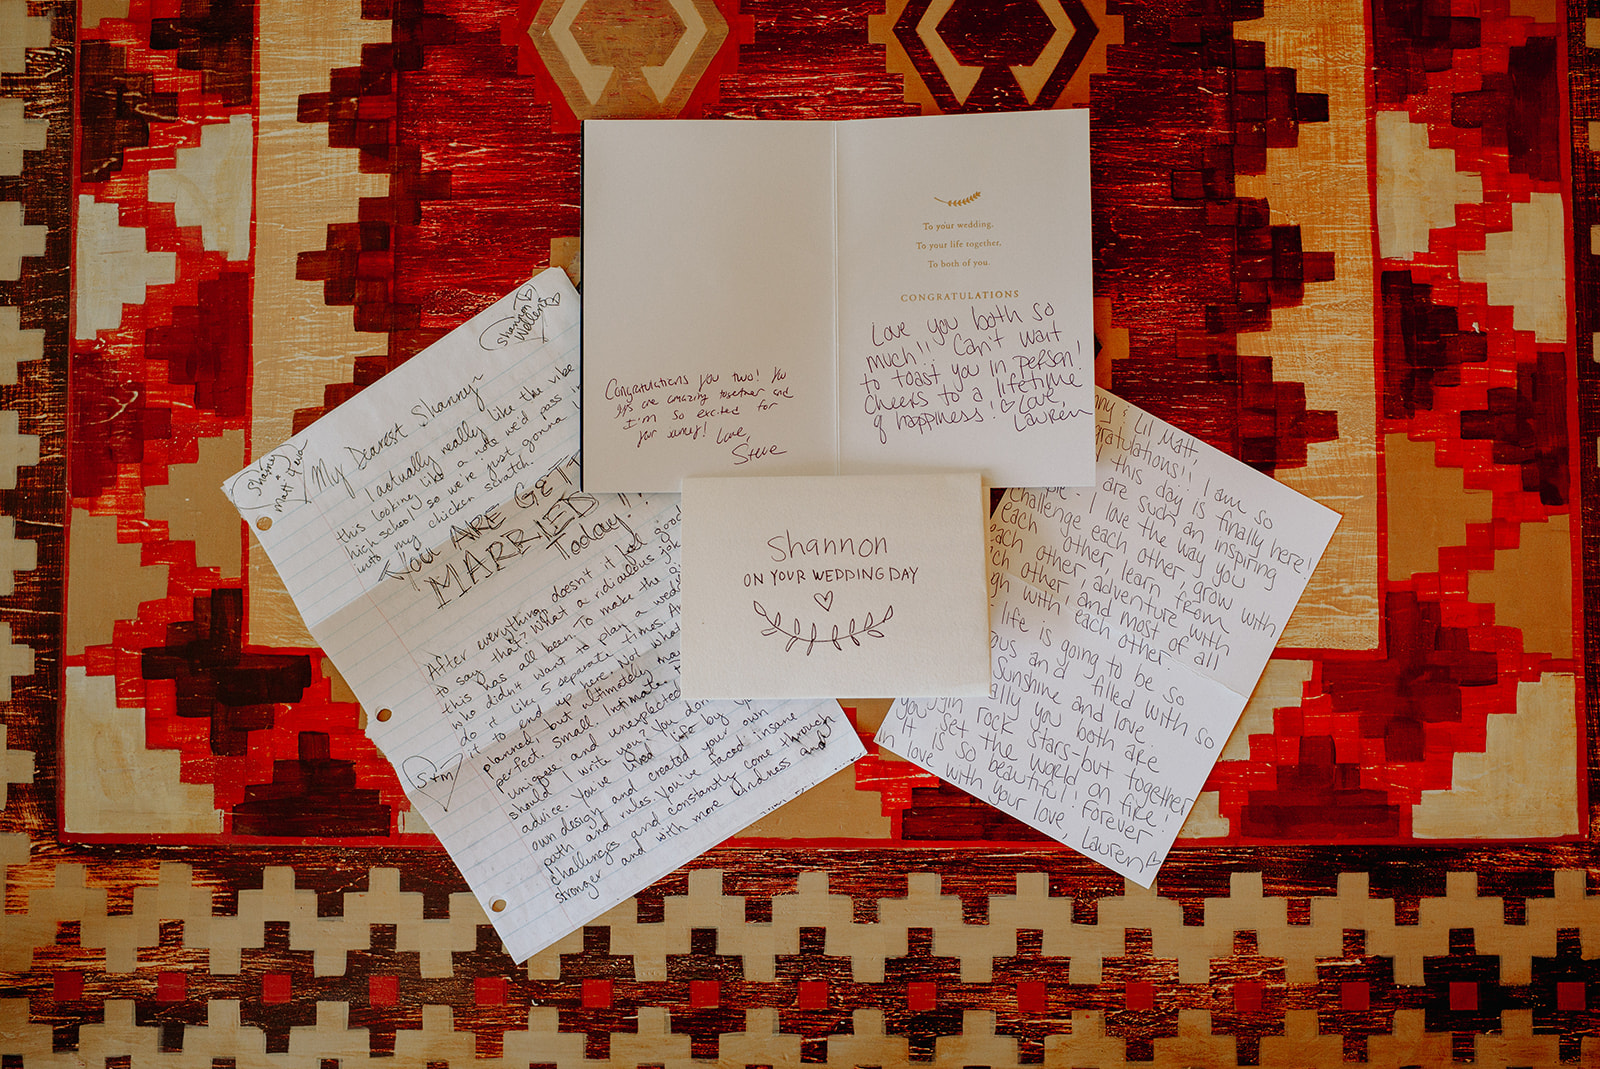 To your wedding,
To your life together,
To both of you.
CONGRATULATIONS
Love you both so
much!! Can't wait
to toast you in person!
Cheers to a lifetime
of happiness! ♡ Love,
Lauren
Congratulations you two! You
guys are amazing together and
I'm so excited for
your journey! Love,
Steve
Shannon
ON YOUR WEDDING DAY
Shannon
Walens
Shanny
+
Matt 4 eva
My Dearest Shannyn
I actually really like the vibe
this looking like a note we'd pass in
high school, so we're just gonna
into my chicken scratch.
YOU ARE GETT
MARRIED
Today!!
After everything, doesn't it feel good
to say that? What a ridiculous jok
this has all been To make the
who didn't want to play a wedd
do it like 5 separate times. An
it to end up here. Not what
planned, but ultimately ma
perfect. Small. Intimate.
unique and unexpected
should I write you? You don
advice. You've lived life by y
own design and created your own
path and rules. You've faced insane
challenges and constantly come through
stronger and with more kindness and
S+M
nny & Lil Matt,
ngratulations!! I am so
d this day is finally here!
are such an inspiring
ple. I love the way you
challenge each other, grow with
each other, learn from
each other, adventure with
ach other, and most of all
gh with each other.
life is going to be so
ous and filled with so
Sunshine and love.
ally you both are
rock stars-but together
you set the world on fire!
It is so beautiful! Forever
in love with your love, Lauren ♡